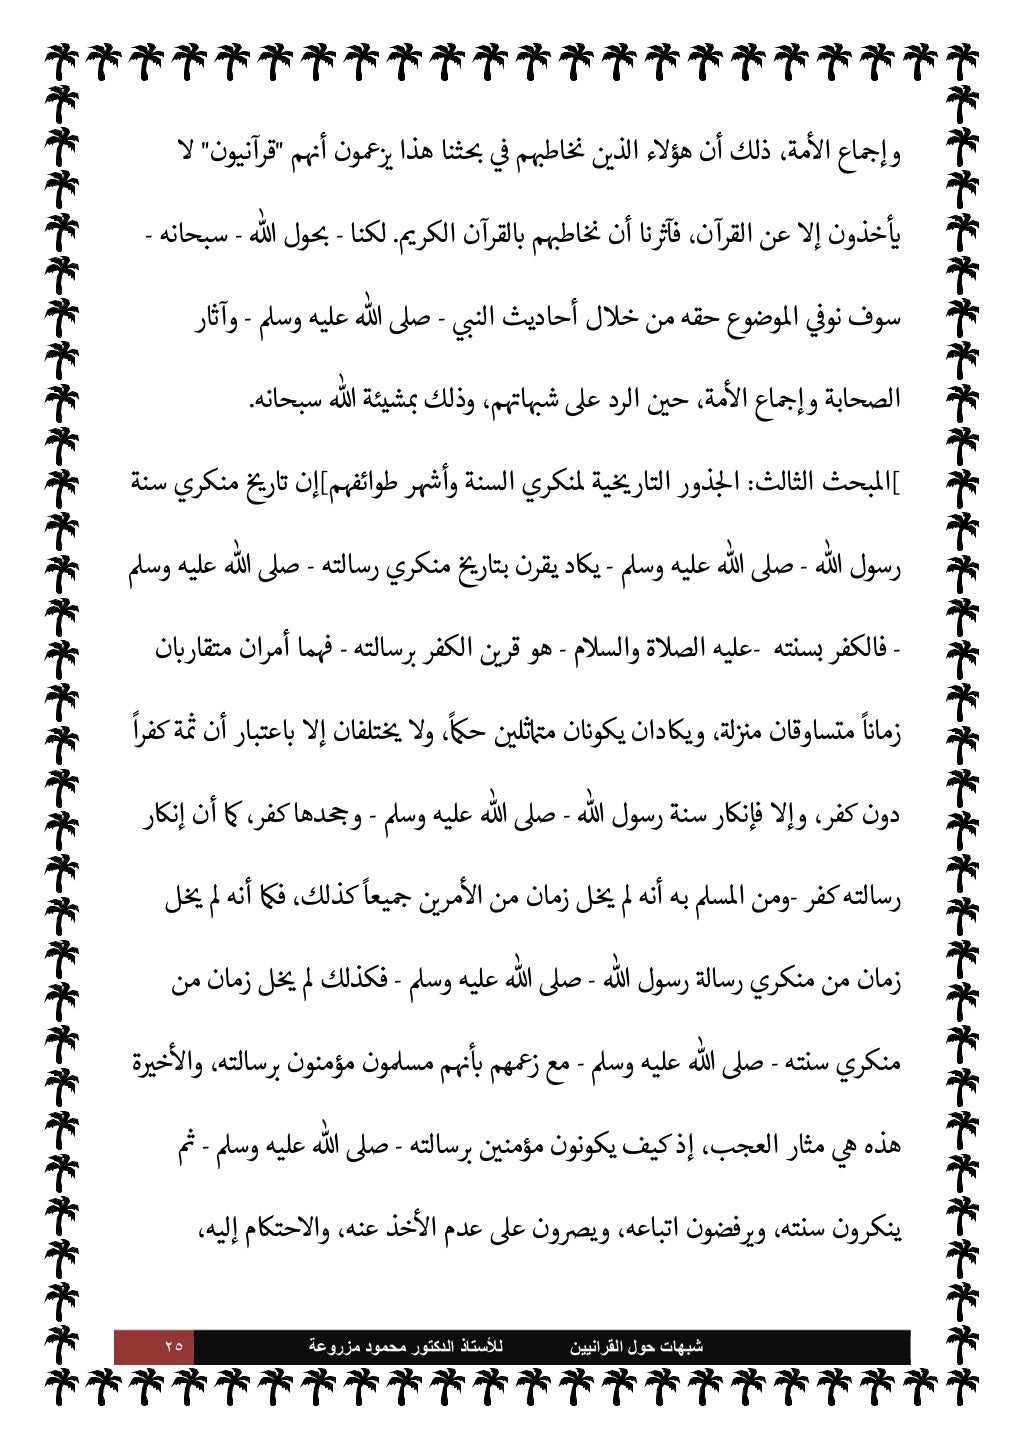 وإجماع الأمة، ذلك أن هؤلاء الذين نخاطبهم في بحثنا هذا يزعمون أنهم "قرآنيون" لا
يأخذون إلا عن القرآن، فآثرنا أن نخاطبهم بالقرآن الكريم. لكنا - بحول الله - سبحانه -
سوف نوفي الموضوع حقه من خلال أحاديث النبي - صلى الله عليه وسلم - وآثار
الصحابة وإجماع الأمة، حين الرد على شبهاتهم، وذلك بمشيئة الله سبحانه.
]المبحث الثالث: الجذور التاريخية لمنكري السنة وأشهر طوائفهم]إن تاريخ منكري سنة
رسول الله - صلى الله عليه وسلم - يكاد يقرن بتاريخ منكري رسالته - صلى الله عليه وسلم
- فالكفر بسنته -عليه الصلاة والسلام - هو قرين الكفر برسالته - فهما أمران متقاربان
زماناً متساوقان منزلة، ويكادان يكونان متماثلين حكماً، ولا يختلفان إلا باعتبار أن ثمة كفراً
دون كفر، وإلا فإنكار سنة رسول الله - صلى الله عليه وسلم - وجحدها كفر، كما أن إنكار
رسالته كفر -ومن المسلم به أنه لم يخل زمان من الأمرين جميعاً كذلك، فكما أنه لم يخل
زمان من منكري رسالة رسول الله - صلى الله عليه وسلم - فكذلك لم يخل زمان من
منكري سنته - صلى الله عليه وسلم - مع زعمهم بأنهم مسلمون مؤمنون برسالته، والأخيرة
هذه هي مثار العجب، إذ كيف يكونون مؤمنين برسالته - صلى الله عليه وسلم - ثم
ينكرون سنته، ويرفضون اتباعه، ويصرون على عدم الأخذ عنه، والاحتكام إليه،
شبهات حول القرانيين للأستاذ الدكتور محمود مزروعة ٢٥